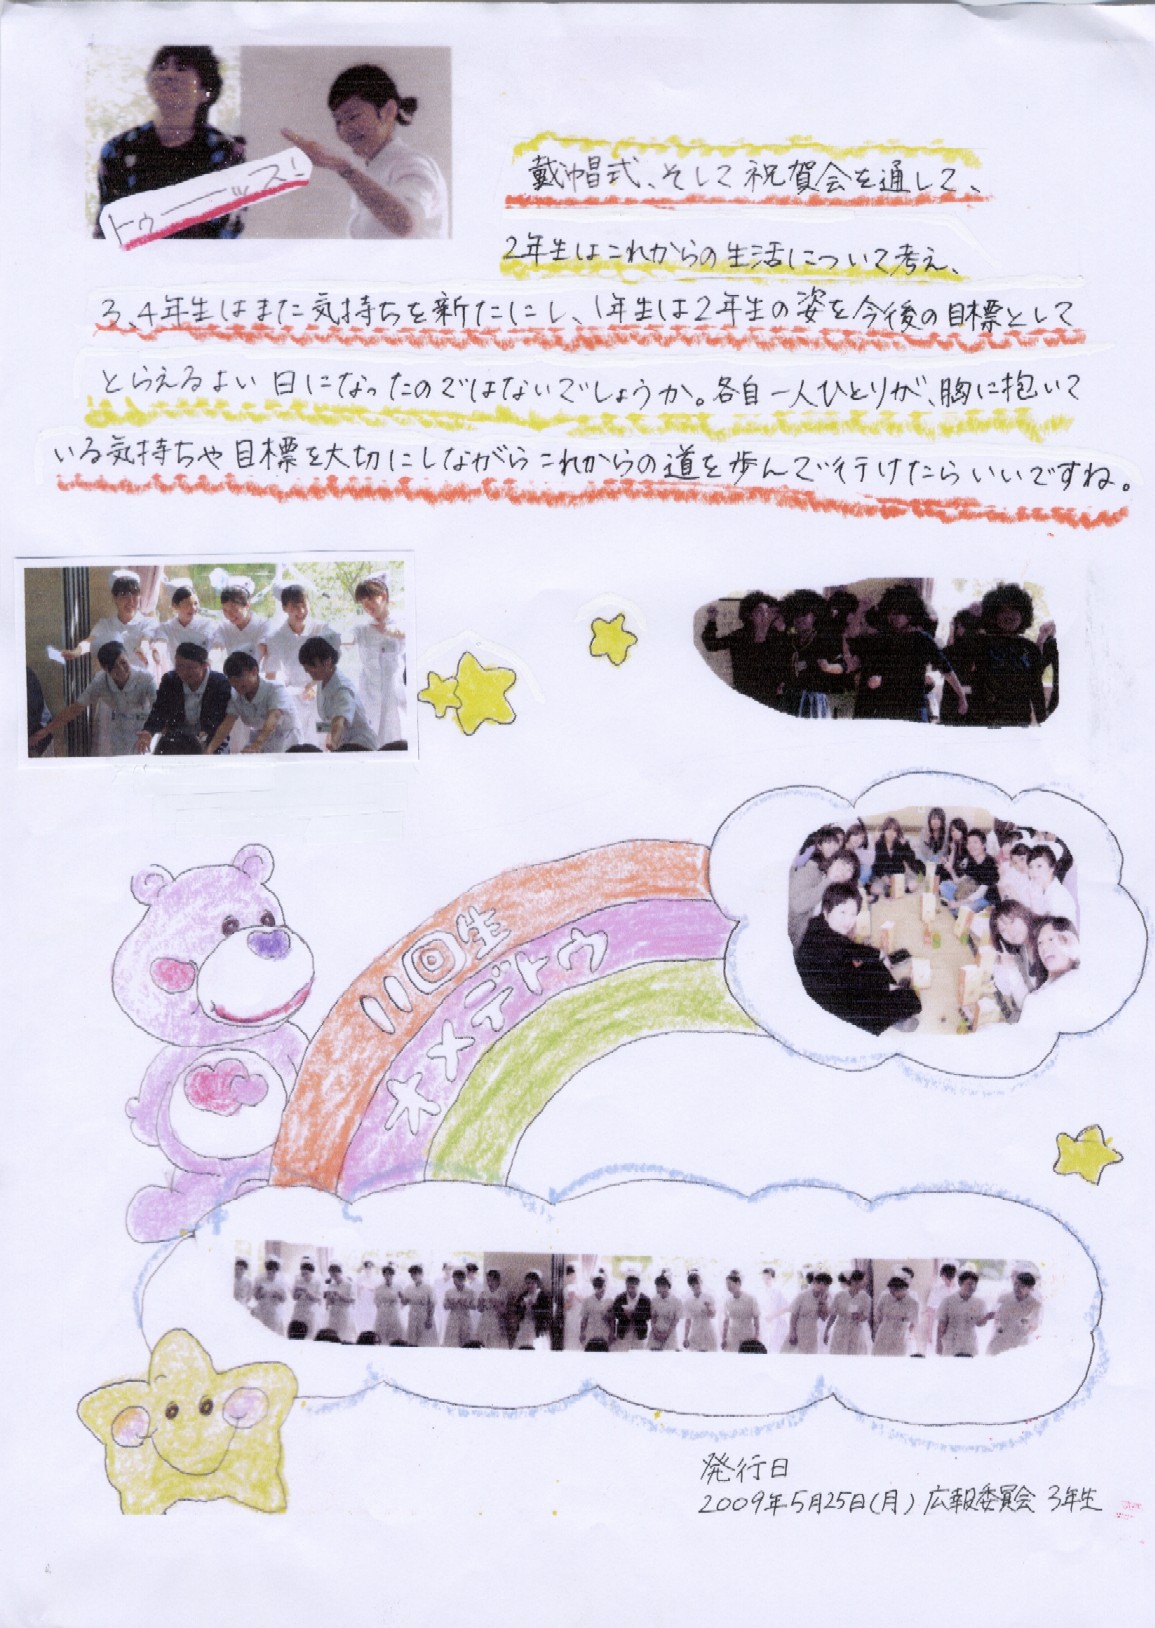 トゥーーッス！
戴帽式、そして祝賀会を通して、
2年生はこれからの生活について考え、
3、4年生はまた気持ちを新たにし、1年生は2年生の姿を今後の目標として
とらえるよい日になったのではないでしょうか。各自一人ひとりが、胸に抱いて
いる気持ちや目標を大切にしながらこれからの道を歩んで行けたらいいですね。
11回生
オメデトウ
発行日
2009年5月25日(月) 広報委員会 3年生